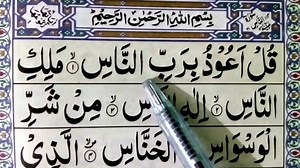 بِسْمِ اللّٰهِ الرَّحْمٰنِ الرَّحِيْمِ
قُلْ اَعُوْذُ بِرَبِّ النَّاسِ ۙ﴿۱﴾ مَلِكِ
النَّاسِ ۙ﴿۲﴾ اِلٰهِ النَّاسِ ۙ﴿۳﴾ مِنْ شَرِّ
الْوَسْوَاسِ الْخَنَّاسِ ۙ﴿۴﴾ الَّذِيْ